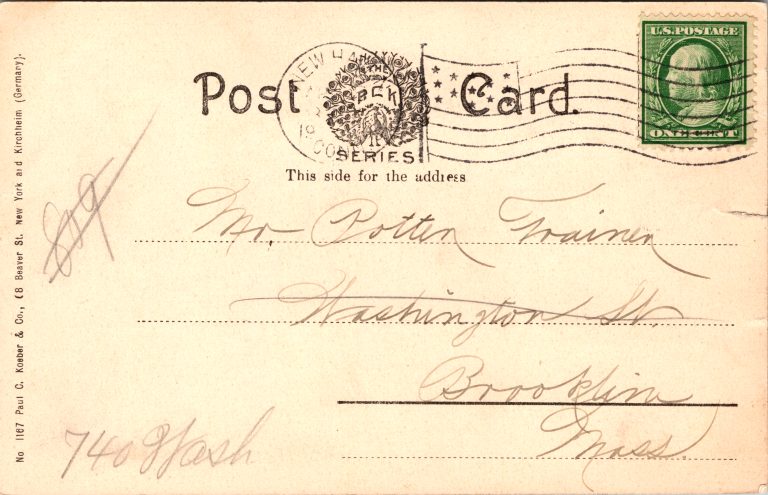 Post Card.
NEW HA
19
CONN
THE
P C K
SERIES
This side for the address
U.S. POSTAGE
ONE CENT
Mr. Potter Trainer
Washington St.
Brookline
Mass.
740 Wash
819
No 1167 Paul C. Koeber & Co., 68 Beaver St. New York and Kirchheim (Germany).